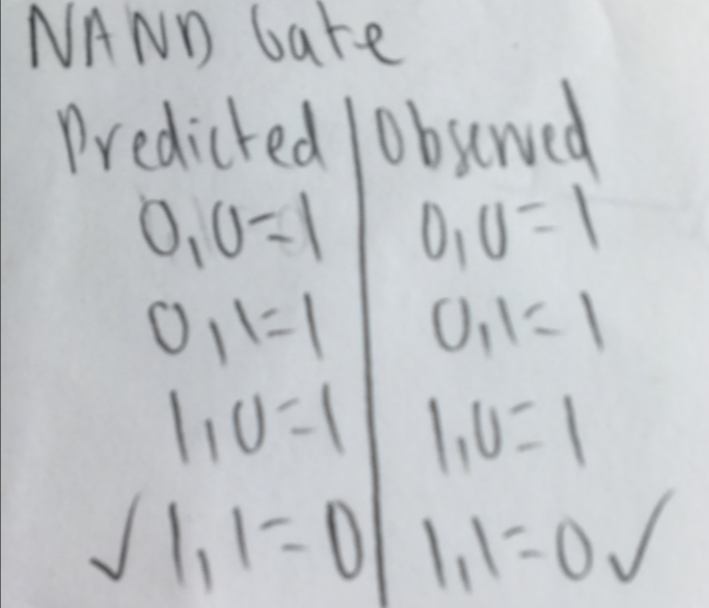 NAND Gate
Predicted | Observed
0,0=1 | 0,0=1
0,1=1 | 0,1=1
1,0=1 | 1,0=1
✓ 1,1=0 | 1,1=0 ✓